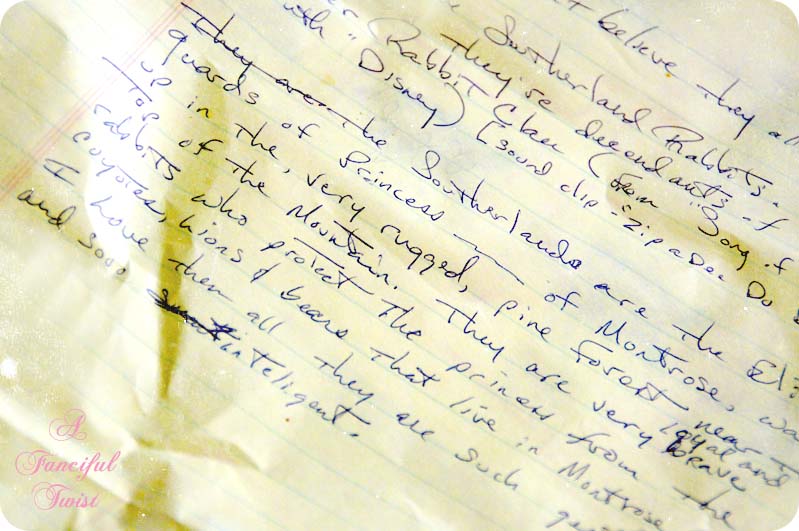 't believe they all
Southerland Rabbits.
they're decendants of
Rabbit Clan (from "Song of
with Disney) (sound clip - zip a Dee Do
They are the Southerlands are the Eli
guards of Princess — of Montrose, wa
up in the, very rugged, pine Forest near
Top of the Mountain. They are very loyal and
rabbits who protect the princess from the brave
coyotes, lions & bears that live in Montrose
I love them all they are such
and sooo inteligent.
A
Fanciful
Twist